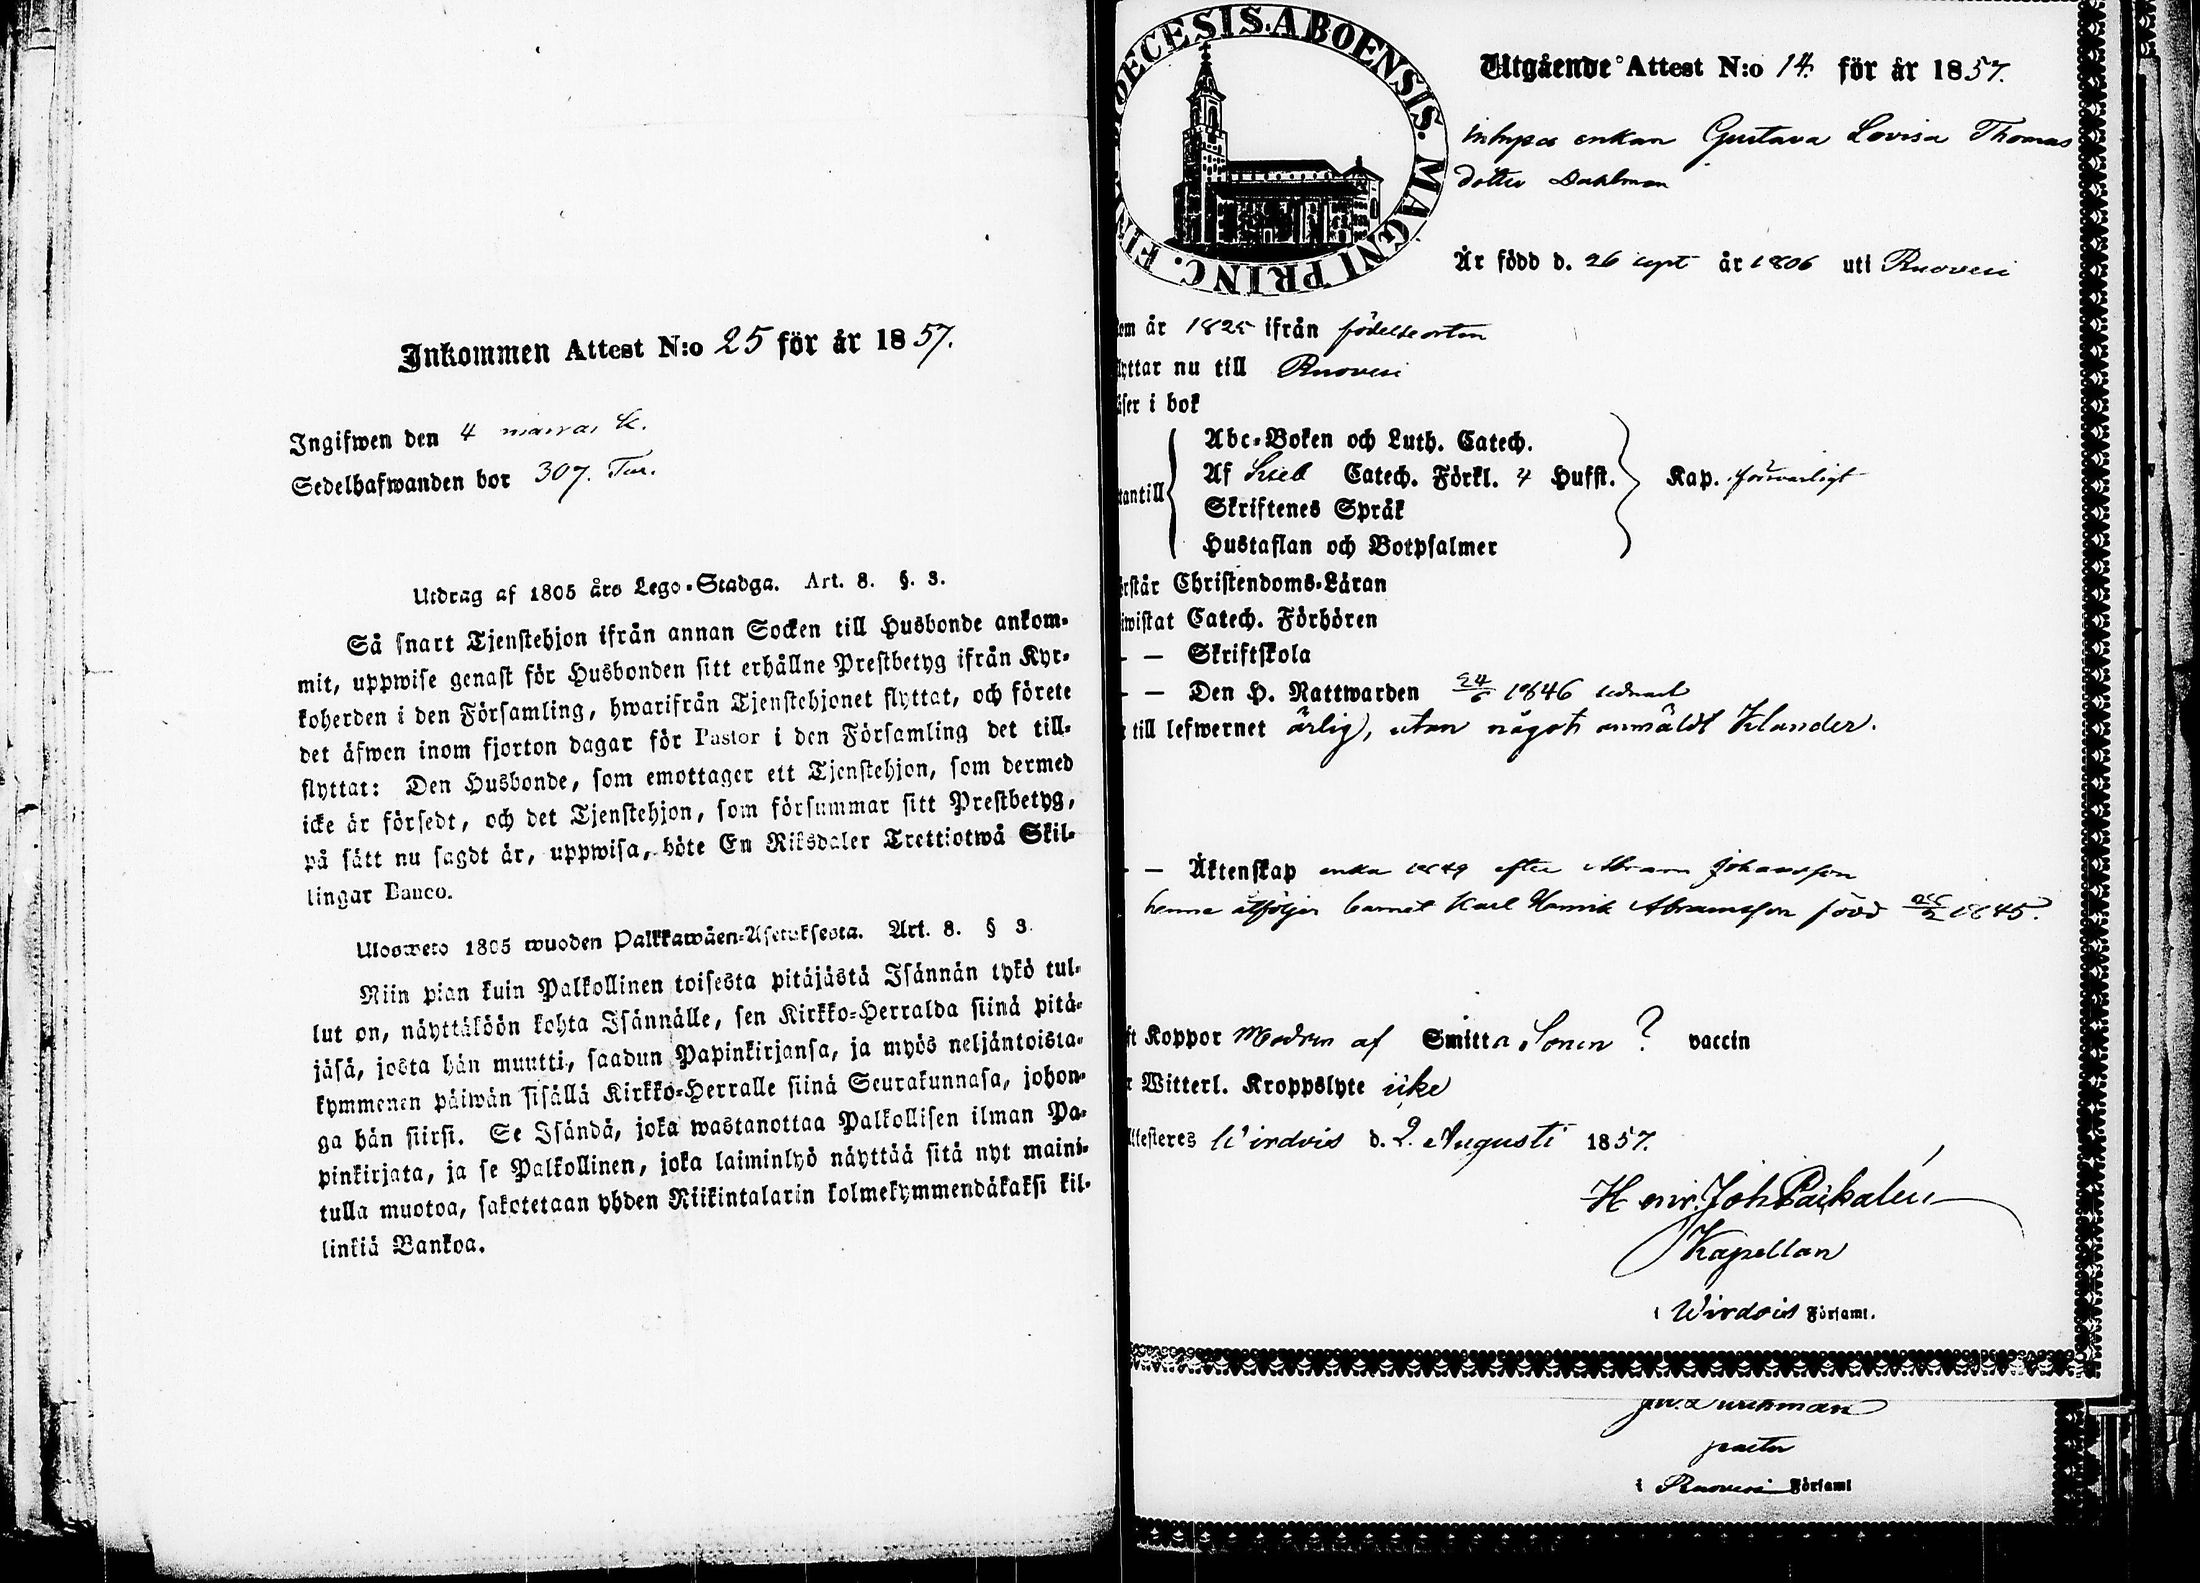 Inkommen Attest N:o 25 för år 1857.
Ingifwen den 4
Sedelhafwanden bor 307. Tur.
Utdrag af 1805 års Lego-Stadga. Art. 8. §. 3.
Så snart Tjenstehjon ifrån annan Socken till Husbonde ankom-
mit, uppwise genast för Husbonden sitt erhållne Prestbetyg ifrån Kyr-
koherden i den Församling, hwarifrån Tjenstehjonet flyttat, och förete
det äfwen inom fjorton dagar för Pastor i den Församling det till-
flyttat: Den Husbonde, som emottager ett Tjenstehjon, som dermed
icke är försedt, och det Tjenstehjon, som försummar sitt Prestbetyg,
på sätt nu sagdt är, uppwisa, böte En Riksdaler Trettiotwå Skil-
lingar Banco.
Ulosweto 1805 wuoden Palkkawäen-Asetuksesta. Art. 8. § 3.
Niin pian kuin Palkollinen toisesta pitäjästä Isännän tykö tul-
lut on, näyttäköön kohta Isännälle, sen Kirkko-Herralda siinä pitä-
jäsä, josta hän muutti, saadun Papinkirjansa, ja myös neljäntoista-
kymmenen päiwän sisällä Kirkko-Herralle siinä Seurakunnasa, johon-
ga hän siirsi. Se Isändä, joka wastanottaa Palkollisen ilman Pa-
pinkirjata, ja se Palkollinen, joka laiminlyö näyttää sitä nyt maini-
tulla muotoa, sakotetaan yhden Riikintalarin kolmekymmendäkaksi kil-
linkiä Bankoa.
DIOECESIS.ABOENSIS. MAGNI PRINC. FIN
Utgående Attest N:o 14. för år 1857.
enkan Gustava Lovisa Thomas
dotter Dahlman
Är född d. 26 sept år 1806 uti Ruovesi
om år 1825 ifrån födelseorten
lyttar nu till Ruovesi
äser i bok
Abc-Boken och Luth. Catech.
Af Catech. Förkl. 4 Hufst. Kap. försvarligt
tantill
Skriftenes Språk
Hustaflan och Botpsalmer
örstår Christendoms-Läran
iwistat Catech. Förhören
- — Skriftskola
- — Den H. Nattwarden 24/6 1846 sednast
till lefwernet ärlig, utan något anmäldt Klander.
- — Äktenskap enka 1849 efter Abram Johansson
henne åtföljer barnet Karl Henrik Abramsson född 1845.
ft Koppor Modren af Smitta, Sonen ? vaccin
r Witterl. Kroppslyte icke
Attesteres Wirdois d. 2 Augusti 1857.
Henr. Joh Paikalén
Kapellan
i Wirdois Församl.
pastor
i Ruovesi Församl